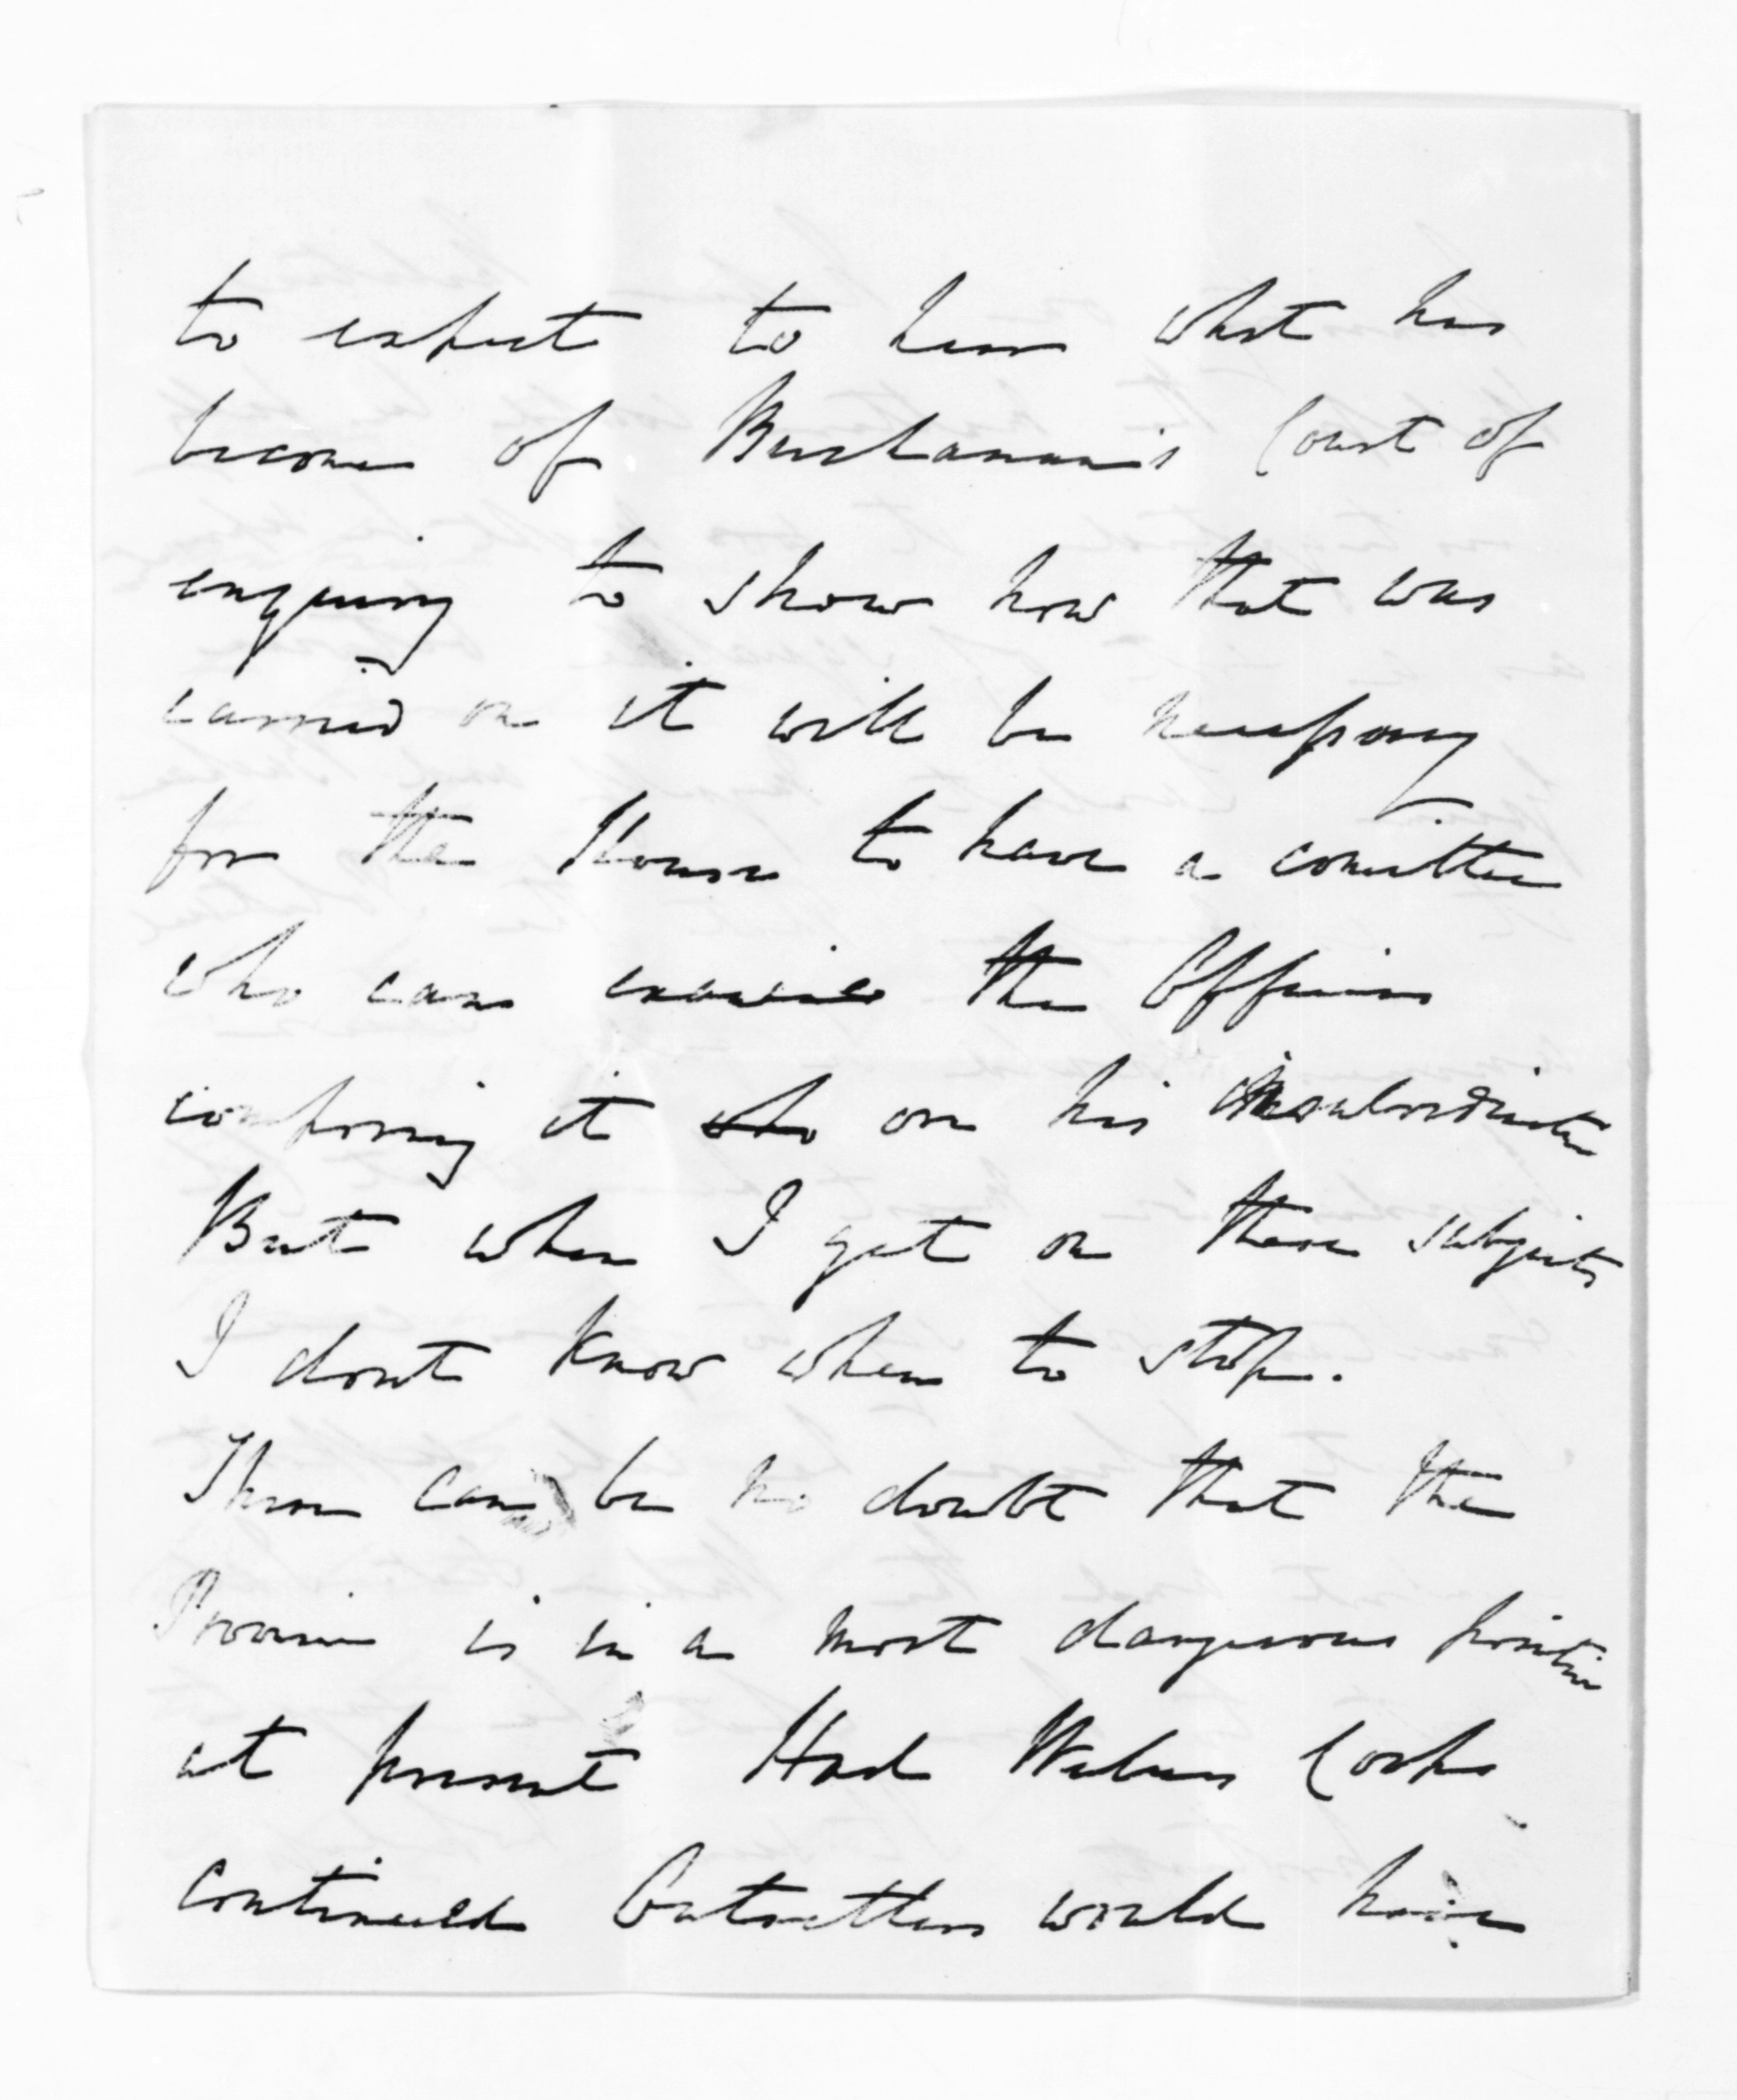 to expect to hear what has
become of Buchanan's Court of
enquiry to show how that was
carried on it will be necessary
for the House to have a comittee
who can examine the Officers
composing it who on his insubordination
But when I get on these subjects
I dont know when to stop.
There can be no doubt that the
Province is in a most dangerous position
at present Had Webers Corps
continued Outsettlers would have